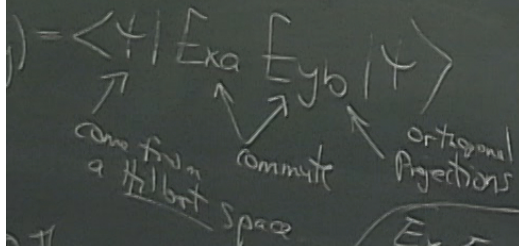 ) = <ψ| Exa Eyb |ψ>
come from
a Hilbert Space
commute
orthogonal
Projections